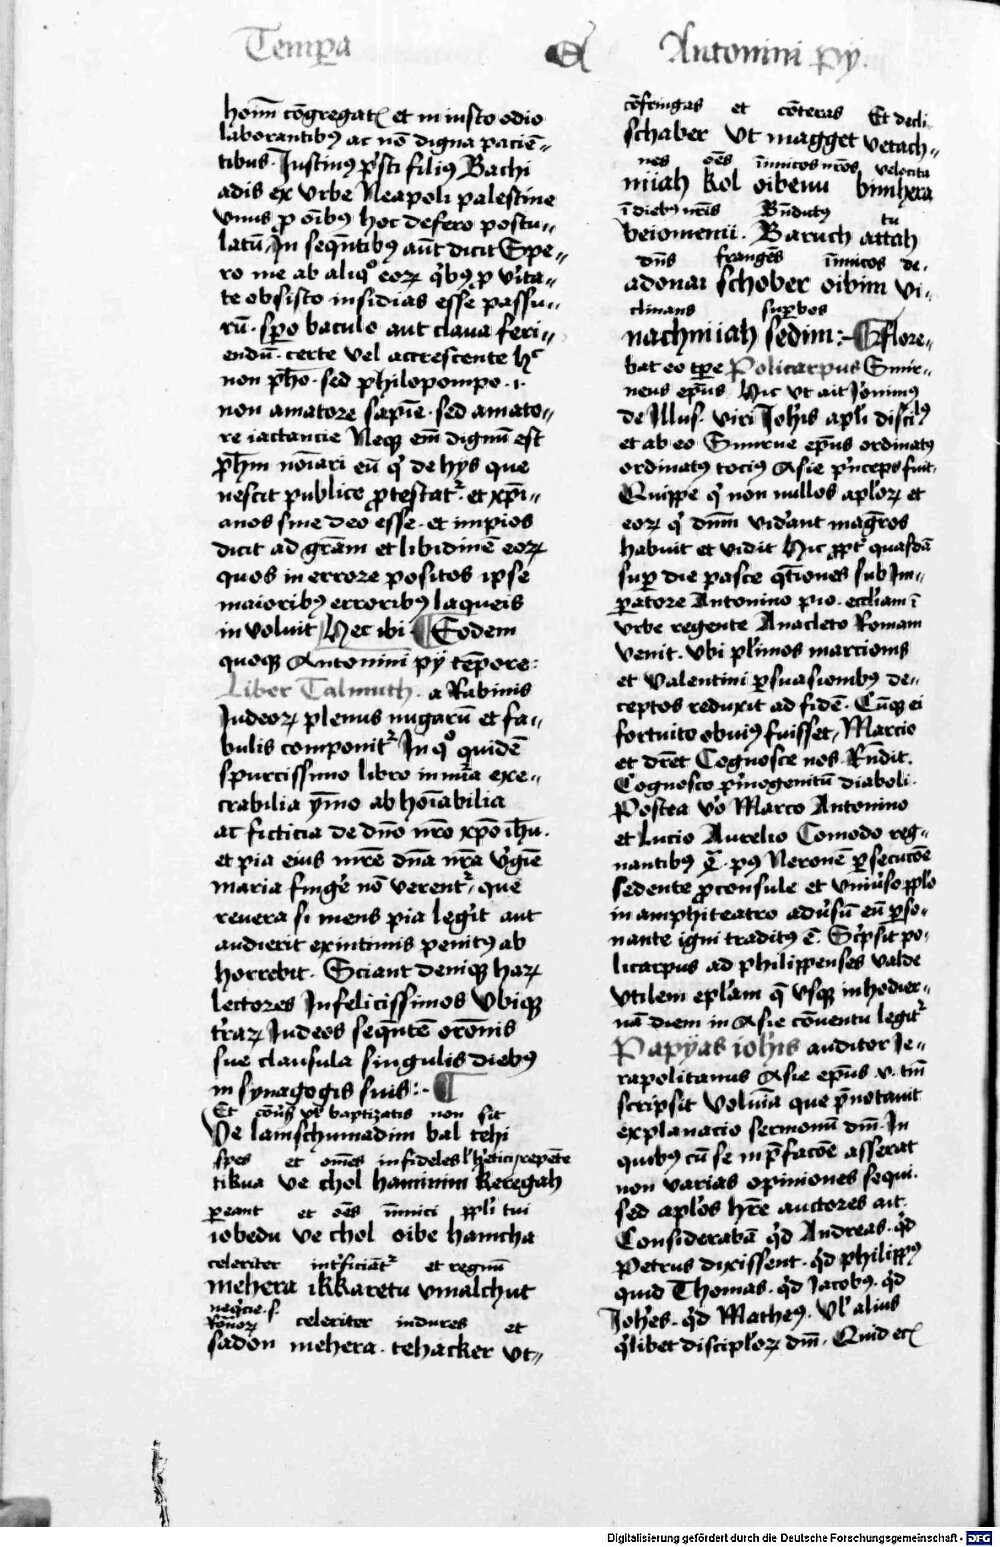 Temp̲a
Antonini py.
hoīm cōgregat̄ et in iusto odio
laborantibꝰ ac nō digna paciē⸗
tibus. Justinꝰ p̄sti filiꝰ Bachi
adis ex vrbe Neapoli palestine
vnus ꝓ oībꝰ hoc defero postu⸗
latū. In seqn̄tibꝰ aūt dicit Spe⸗
ro me ab aliqͦ eoꝝ qͥbꝰ ꝓ vīta⸗
te obsisto insidias esse passu⸗
rū. sp̄o baculo aut claua feri⸗
endū. certe vel accrescente hͨ
non ph̄o. sed philopompo .i.
non amatore sapīe. sed amato⸗
re iactancie Neqꝫ em̄ dignū est
ph̄m noīari eū qͥ de hys que
nescit publice ꝓtestatᷣ. et xp̄i⸗
anos sine deo esse. et impios
dicit ad grām et libidinē eoꝝ
quos in errore positos ipse
maioribꝰ erroribꝰ laqueis
inuoluit Hec ibi ¶ Eodem
quoqꝫ Antonini py tēpore:
Liber Talmuth. a Rabinis
Judeoꝝ plenus nugarū et fa⸗
bulis componitᷣ In qͦ quidē
spurcissimo libro inmīa exe⸗
crabilia ymo abhoīabilia
ac ficticia de dn̄o nr̄o xp̄o ih̄u.
et pia eius mr̄e dn̄a nr̄a vgīe
maria fingē nō verentᷣ, que
reuera si mens pia legīt aut
audierit exintimis penitꝰ ab
horrebit. Sciant deniqꝫ haꝝ
lectores Infelicissimos vbiqꝫ
tr̄aꝝ Judeos seqn̄tē orōnis
sue clausula singulis diebꝰ
in synagogis suis:- ¶
Et cōuͥs vl̓ baptizatis non sit
Ve lamschumadim bal tehi
spes et omēs infideles l̓ h̄etici repēte
tikua ve chol haminim keregah
ꝑeant et oēs inimici pp̄li tui
iobedu ve chol oibe hamcha
celeriter intᷣficiātᷣ et regnū
mehera ikkaretu vmalchut
neqͥcie .f.
celeriter indures et
sadon mehera. tehacker vt⸗
cōfringas et cōteras Et decli⸗
schaber vt magger vetach⸗
nes oēs inimicos nr̄os velocita
niiah kol oibenu bimhera
ī diebꝰ nr̄is Bn̄dictꝰ tu
beiomenii. Baruch attah
dn̄s frangēs īimicos de⸗
adonai schober oibim vi⸗
clinans suꝑbos
nachmiiah sedim:- ¶ Flore⸗
bat eo tꝑe Policarpus Smir⸗
neus ep̄us Hic vt ait Jōnimꝰ
de Illus. viri Joh̄is apl̓i disci̓lꝰ
et ab eo Smirne ep̄us ordinatꝰ
ordinatꝰ tociꝰ Asie pͥnceps fuit.
Quippe qͥ non nullos apl̓oꝝ et
eoꝝ qͥ dn̄m vidāt magr̄os
habuit et vidit Hic ꝓptᷣ quasdā
suꝑ die pasce qͣtiones sub Im⸗
ꝑatore Antonino pio. eccl̓iam ī
vrbe regente Anacleto Romam
venit. vbi pl̓imos marcionis
et Valentini ꝑsuasionibꝰ de⸗
ceptos reduxit ad fidē. Cūqꝫ ei
fortuito obuiꝰ fuisset, Marcio
et dr̄et Cognosce nos. Rn̄dit.
Cognosco pͥmogenitū diaboli.
Postea vͦo Marco Antonino
et Lucio Aurelio Comodo reg⸗
nantibꝰ pꝰ Neronē ꝑsecucōe
sedente ꝓconsule et vniūso pp̄lo
in amphiteatro adūsū eū ꝑso⸗
nante igni traditꝰ ē. Scͥpsit po⸗
licarpus ad philippenses valde
vtilem epl̓am q̄ vsqꝫ inhodier⸗
nā diem in Asie cōuentu legitᷣ
Papyas ioh̄is auditor Je⸗
rapolitanus Asie ep̄us .v. tm̄
scripsit volūia que p̄notauit
explanacio sermonū dn̄i. In
quibꝰ cū se in p̄facōe asserat
non varias opiniones sequi.
sed apl̓os hr̄e auctores ait.
Considerabā qͥd Andreas. qͥd
Petrus dixissent. qͥd philippꝰ
quid Thomas. qͥd Jacobꝰ. qͥd
Joh̄es. qͥd Matheꝰ. vl̓ alius
qͥlibet discipl̓oꝝ dn̄i. Quid etc̄
Digitalisierung gefördert durch die Deutsche Forschungsgemeinschaft - DFG